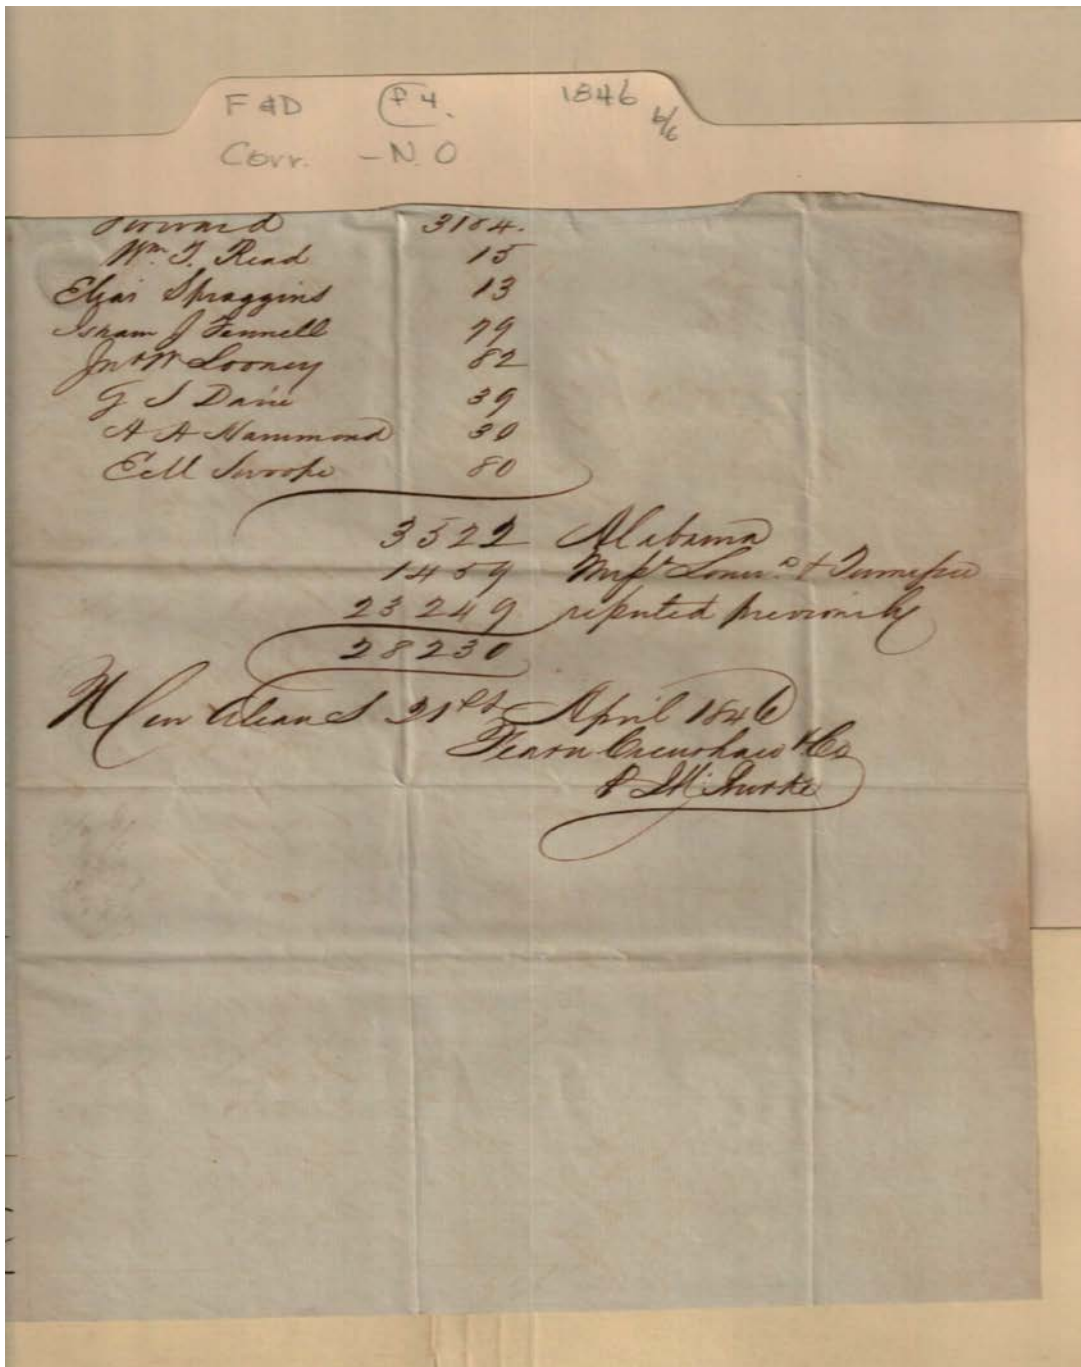 F & D f 4. 1846 6/6
Corr. - N.O
Forward 3184.
Wm. T. Read 15
Elijas Spraggins 13
Isham J Fennell 79
Jno W Looney 82
G S Davie 39
A A Hammond 30
E M Swoope 80
3522 Alabama
1459 Missi Louisa & Tennessee
23249 reported previously
28230
New Orleans 21st April 1846
Fearn Crenshaw & Co